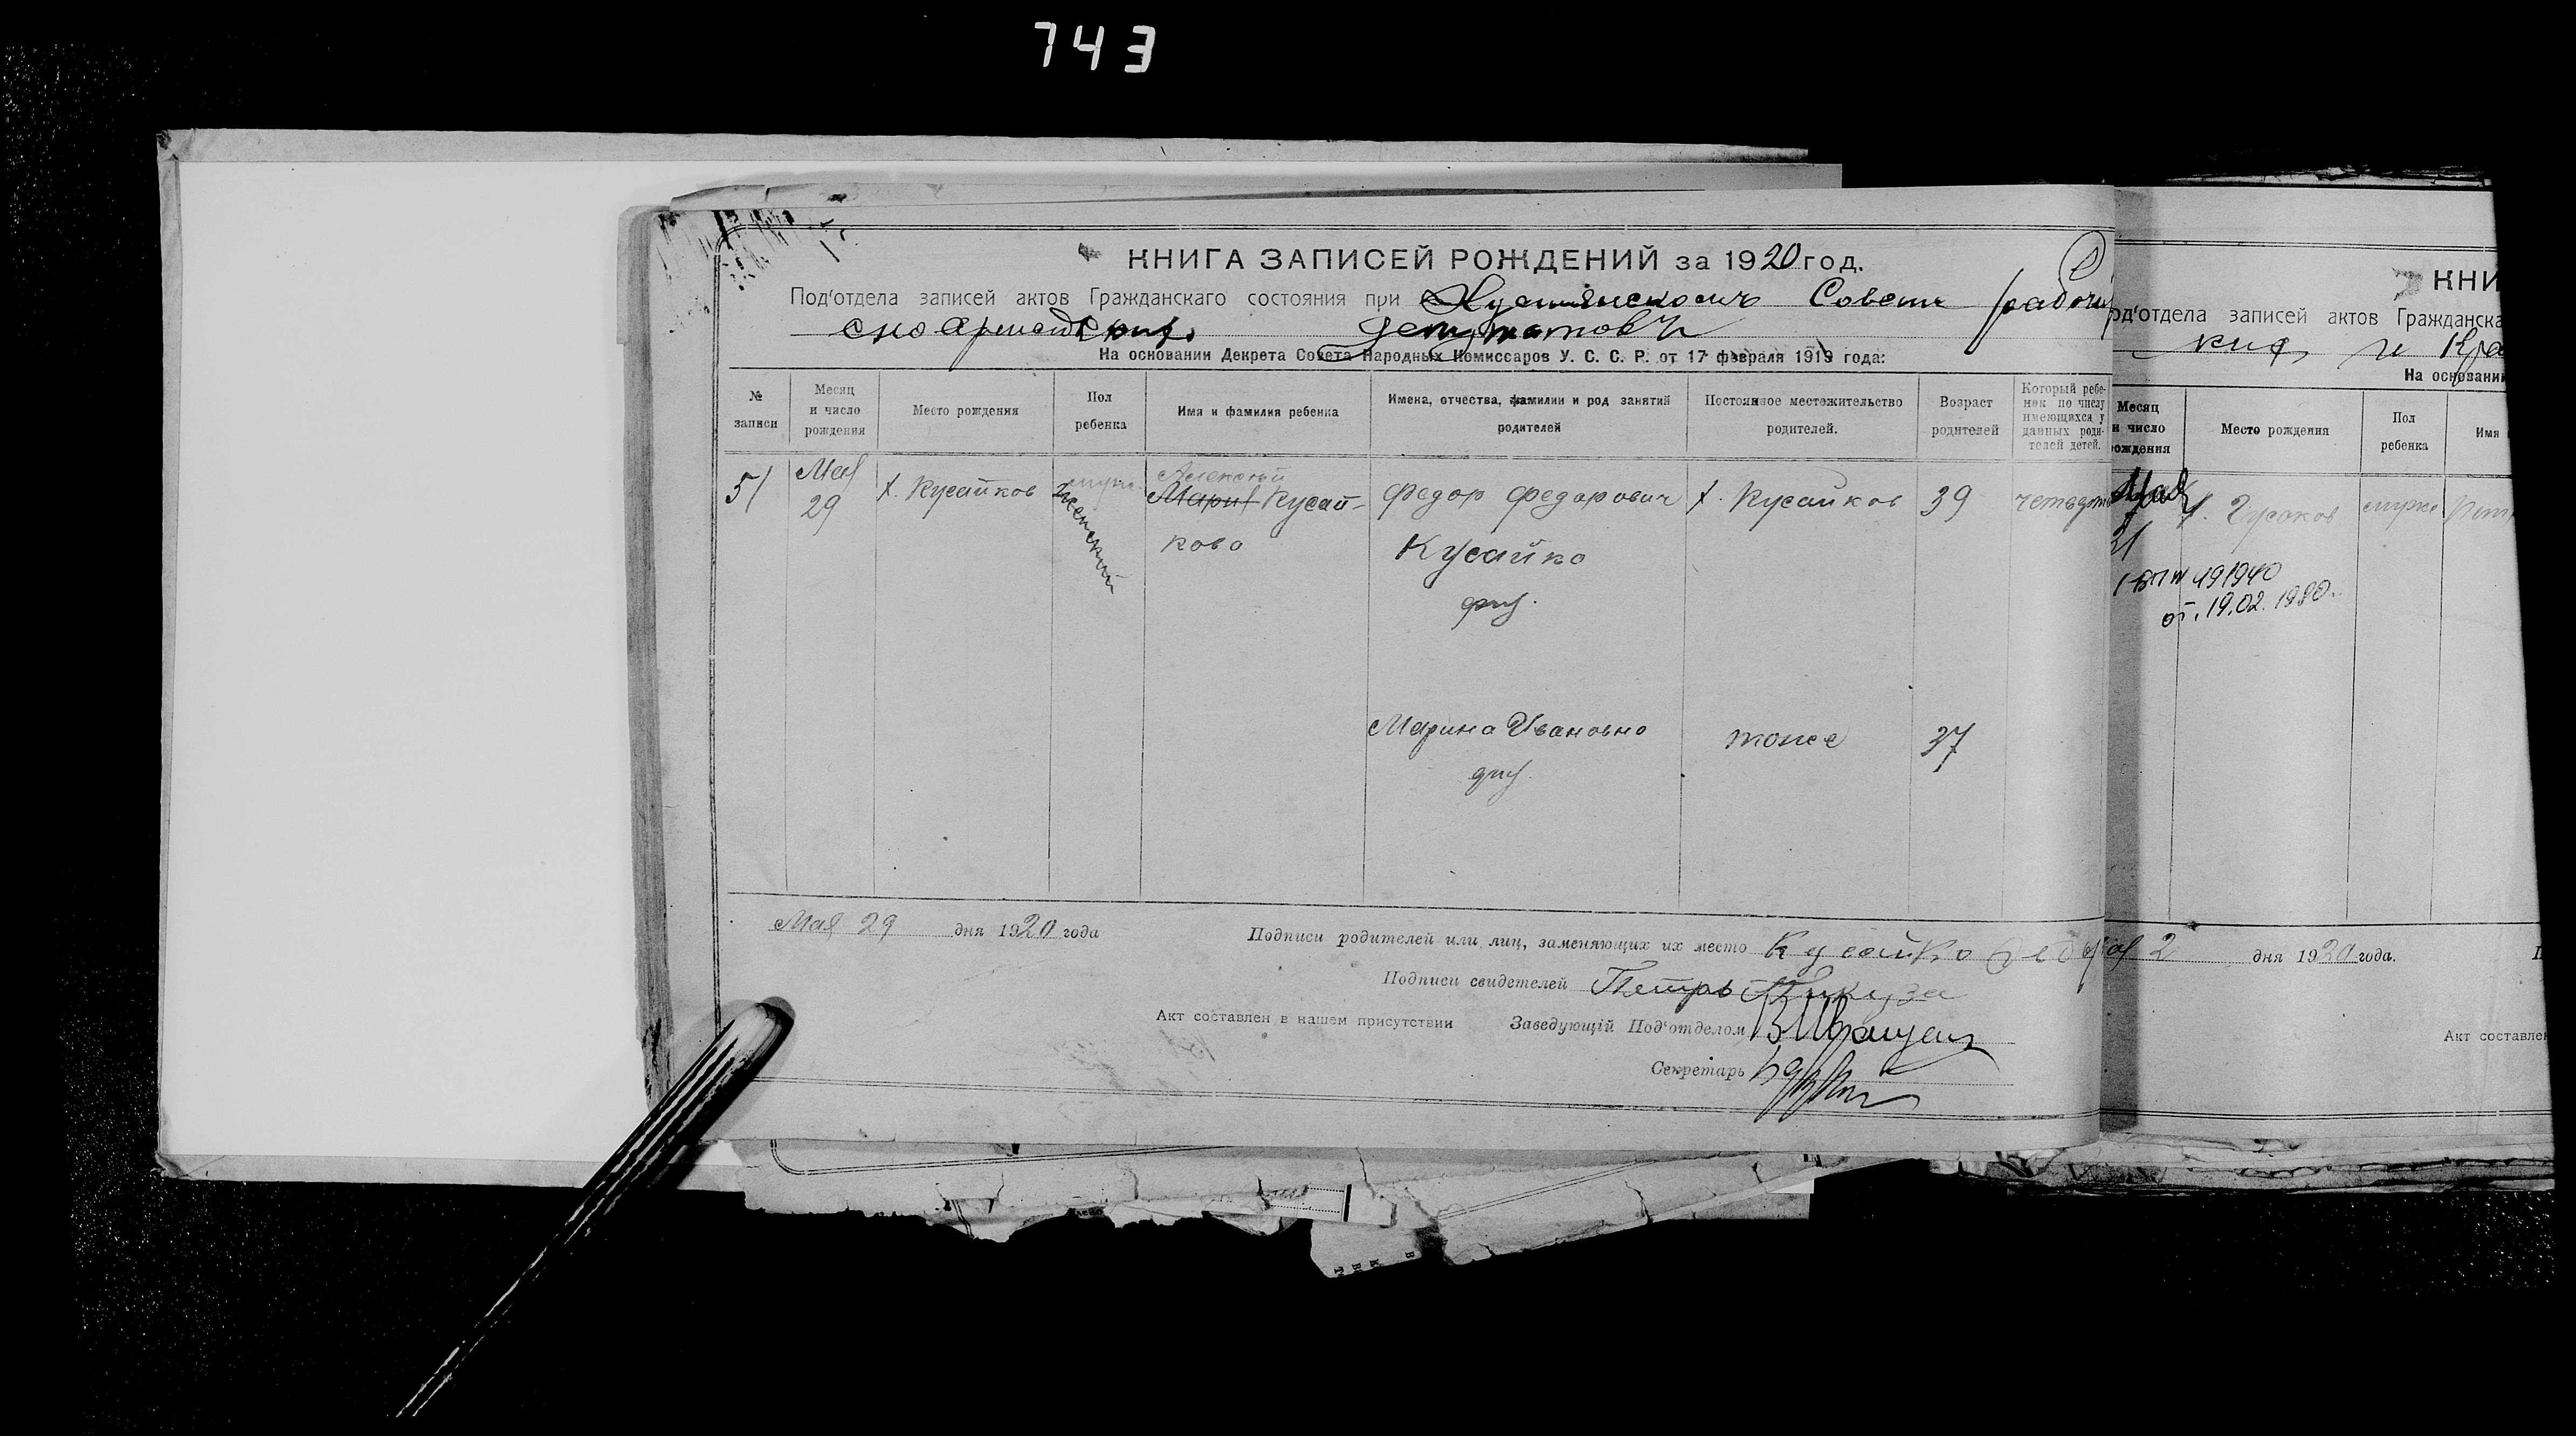 743
КНИГА ЗАПИСЕЙ РОЖДЕНИЙ за 1920 год.
Под'отдела записей актов Гражданскаго состояния при Совете рабочи
Депутатовъ
На основании Декрета Совета Народных Комиссаров У. С. С. Р. от 17 февраля 1919 года:
№ записи
Месяц и число рождения
Место рождения
Пол ребенка
Имя и фамилия ребенка
Имена, отчества, фамилии и род занятий родителей
Постоянное местожительство родителей.
Возраст родителей
Который ребе-
нок по числу
имеющихся у
данных роди-
телей детей.
51
Мая 29
х. Кусайков
муж.
женский
Алексей
Мария Кусай-
кова
Федор Федорович
Кусайко
х. Кусайков
39
Марина Ивановна
тоже
37
Мая 29 дня 1920 года
Подписи родителей или лиц, заменяющих их место Кусайко
Подписи свидетелей Петръ
Акт составлен в нашем присутствии Заведующій Под'отделом
Секретарь
КНИ
од'отдела записей актов Гражданска
ких и Кра
На основании
Месяц
и число
ождения
Место рождения
Пол
ребенка
Имя
Мая
21
х. Гусаков
муже
191940
от. 19.02.1980.
2 дня 1920 года.
Акт составлен